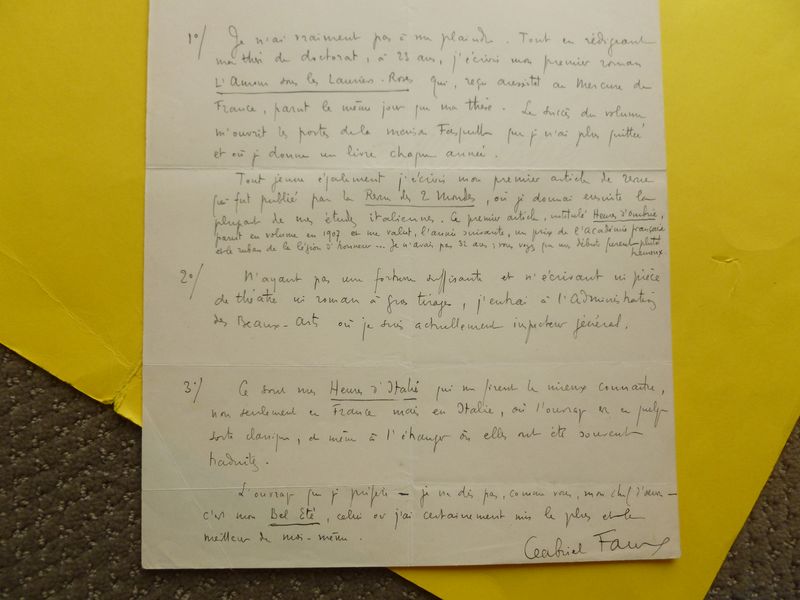 1°/ Je n'ai vraiment pas à me plaindre. Tout en rédigeant
ma thèse de doctorat, à 23 ans, j'écrivis mon premier roman
L'Amour sous les Lauriers-Roses qui, reçu aussitôt au Mercure de
France, parut le même jour que ma thèse. Le succès du volume
m'ouvrit les portes de la maison Fasquelle que je n'ai plus quittée
et où je donne un livre chaque année.
Tout jeune également j'écrivis mon premier article de revue
qui fut publié par la Revue des 2 Mondes, où je donnai ensuite la
plupart de mes études italiennes. Ce premier article, intitulé Heures d'Ombrie,
parut en volume en 1907 et me valut, l'année suivante, un prix de l'Académie française
et le ruban de la légion d'honneur... Je n'avais pas 32 ans ; vous voyez que mes débuts furent plutôt
heureux.
2°/ N'ayant pas une fortune suffisante et n'écrivant ni pièce
de théâtre ni roman à gros tirages, j'entrai à l'Administration
des Beaux-Arts où je suis actuellement inspecteur général.
3°/ Ce sont mes Heures d'Italie qui me firent le mieux connaître,
non seulement en France mais en Italie, où l'ouvrage est en quelque
sorte classique, et même à l'étranger où elles ont été souvent
traduites.
L'ouvrage que je préfère — je ne dis pas, comme vous, mon chef d'œuvre —
c'est mon Bel Eté, celui où j'ai certainement mis le plus et le
meilleur de moi-même.
Gabriel Faure